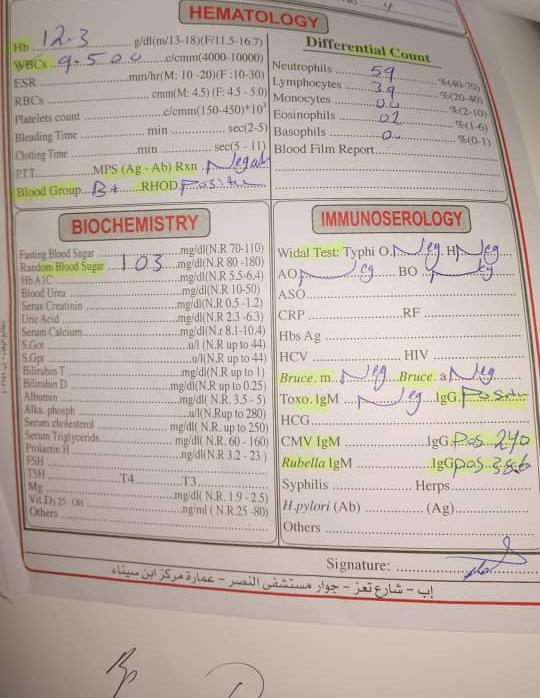 4
HEMATOLOGY
Hb 12.3 g/dl(m/13-18)(F/11.5-16.7)
WBCs 9.500 c/cmm(4000-10000)
ESR mm/hr(M: 10 -20)(F :10-30)
RBCs cmm(M: 4.5) (F: 4.5 - 5.0)
Platelets count c/cmm(150-450)*10³
Bleading Time min sec(2-5)
Clotting Time min sec(5 - 11)
P.T.T MPS (Ag - Ab) Rxn Negat
Blood Group B+ RHOD Positive
Differential Count
Neutrophils 59 %(40-70)
Lymphocytes 39 %(20-40)
Monocytes %(2-10)
Eosinophils 02 %(1-6)
Basophils %(0-1)
Blood Film Report
BIOCHEMISTRY
Fasting Blood Sugar mg/dl(N.R 70-110)
Random Blood Sugar 103 mg/dl(N.R 80 -180)
Hb A1C mg/dl(N.R 5.5-6.4)
Blood Urea mg/dl(N.R 10-50)
Serun Creatinin mg/dl(N.R 0.5 -1.2)
Uric Acid mg/dl(N.R 2.3 -6.3)
Serum Calcium mg/dl(N.r 8.1-10.4)
S.Got u/l (N.R up to 44)
S.Gpt u/l(N.R up to 44)
Bilirubin T mg/dl(N.R up to 1)
Bilirubin D mg/dl(N.R up to 0.25)
Albumin mg/dl(N.R. 3.5 - 5)
Alka. phosph u/l(N.Rup to 280)
Serum cholesterol mg/dl( N.R. up to 250)
Serum Triglycerids mg/dl( N.R. 60 - 160)
Prolactin H ng/dl(N.R 3.2 - 23 )
FSH
TSH T4 T3
Mg mg/dl( N.R. 1.9 - 2.5)
Vit.D3 25 - OH ng/ml ( N.R 25 -80)
Others
IMMUNOSEROLOGY
Widal Test: Typhi O. Neg H Neg
AO Neg BO Neg
ASO
CRP RF
Hbs Ag
HCV HIV
Bruce. m Neg Bruce. a Neg
Toxo. IgM Neg IgG. Positive
HCG
CMV IgM IgG Pos 240
Rubella IgM IgG pos 386
Syphilis Herps
H.pylori (Ab) (Ag)
Others
Signature:
إب - شارع تعز - جوار مستشفى النصر - عمارة مركز ابن سيناء